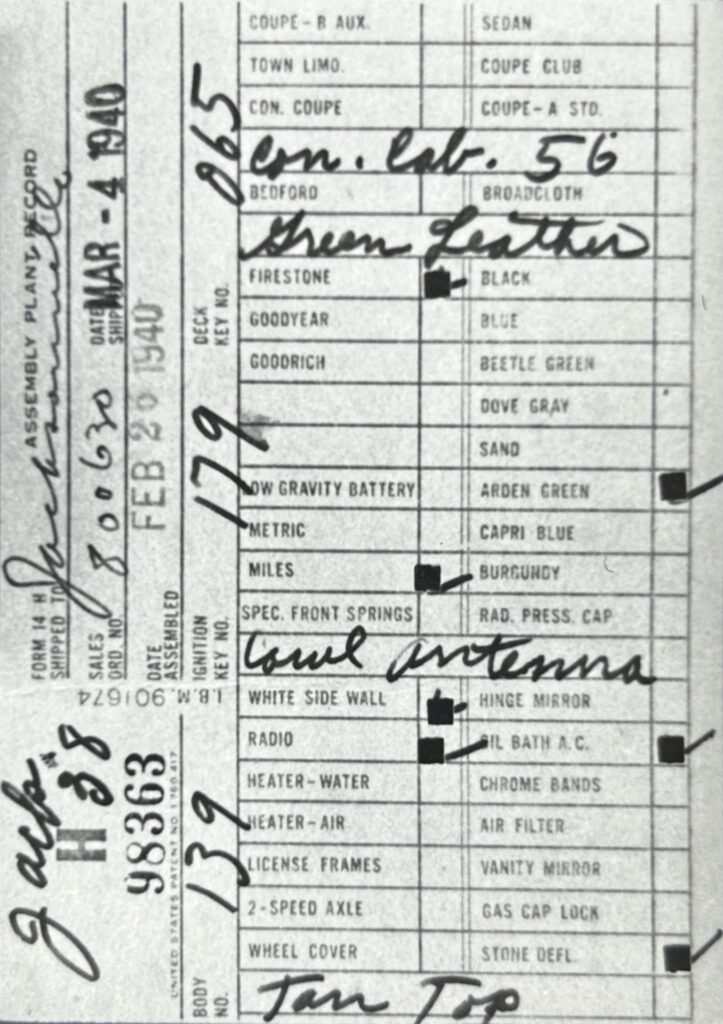 FORM 14 H ASSEMBLY PLANT RECORD
SHIPPED TO Jacksonville
SALES ORD. NO. 800630 DATE SHIP. MAR - 4 1940
DATE ASSEMBLED FEB 26 1940
IGNITION KEY NO. 179 DECK KEY NO. 865
Jack
H 38
98363
UNITED STATES PATENT NO. 1,780,417
I.B.M. 901674
BODY NO. 139
COUPE-B AUX. SEDAN
TOWN LIMO. COUPE CLUB
CON. COUPE COUPE-A STD.
Con. Cab. 56
BEDFORD BROADCLOTH
Green Leather
FIRESTONE BLACK
GOODYEAR BLUE
GOODRICH BEETLE GREEN
DOVE GRAY
SAND
LOW GRAVITY BATTERY ARDEN GREEN
METRIC CAPRI BLUE
MILES BURGUNDY
SPEC. FRONT SPRINGS RAD. PRESS. CAP
Cowl Antenna
WHITE SIDE WALL HINGE MIRROR
RADIO OIL BATH A.C.
HEATER-WATER CHROME BANDS
HEATER-AIR AIR FILTER
LICENSE FRAMES VANITY MIRROR
2-SPEED AXLE GAS CAP LOCK
WHEEL COVER STONE DEFL.
Tan Top